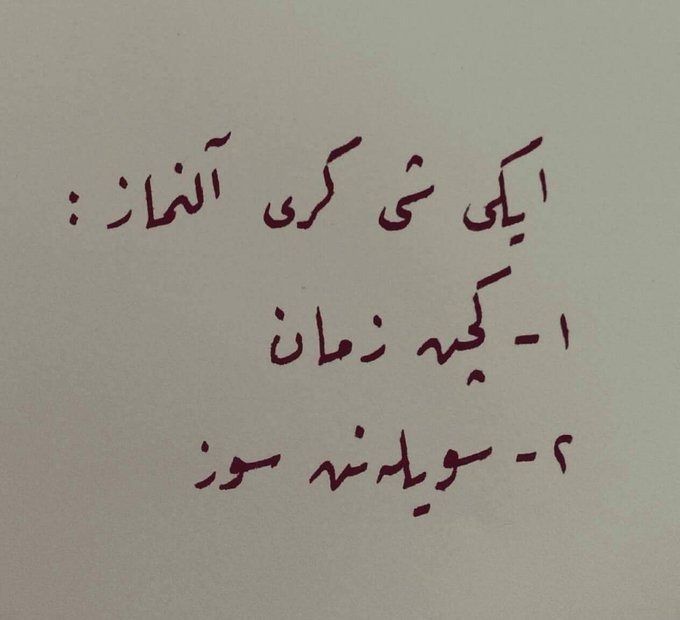 ایکی شی کری آلنماز :
١- کچن زمان
٢- سویله‌نن سوز